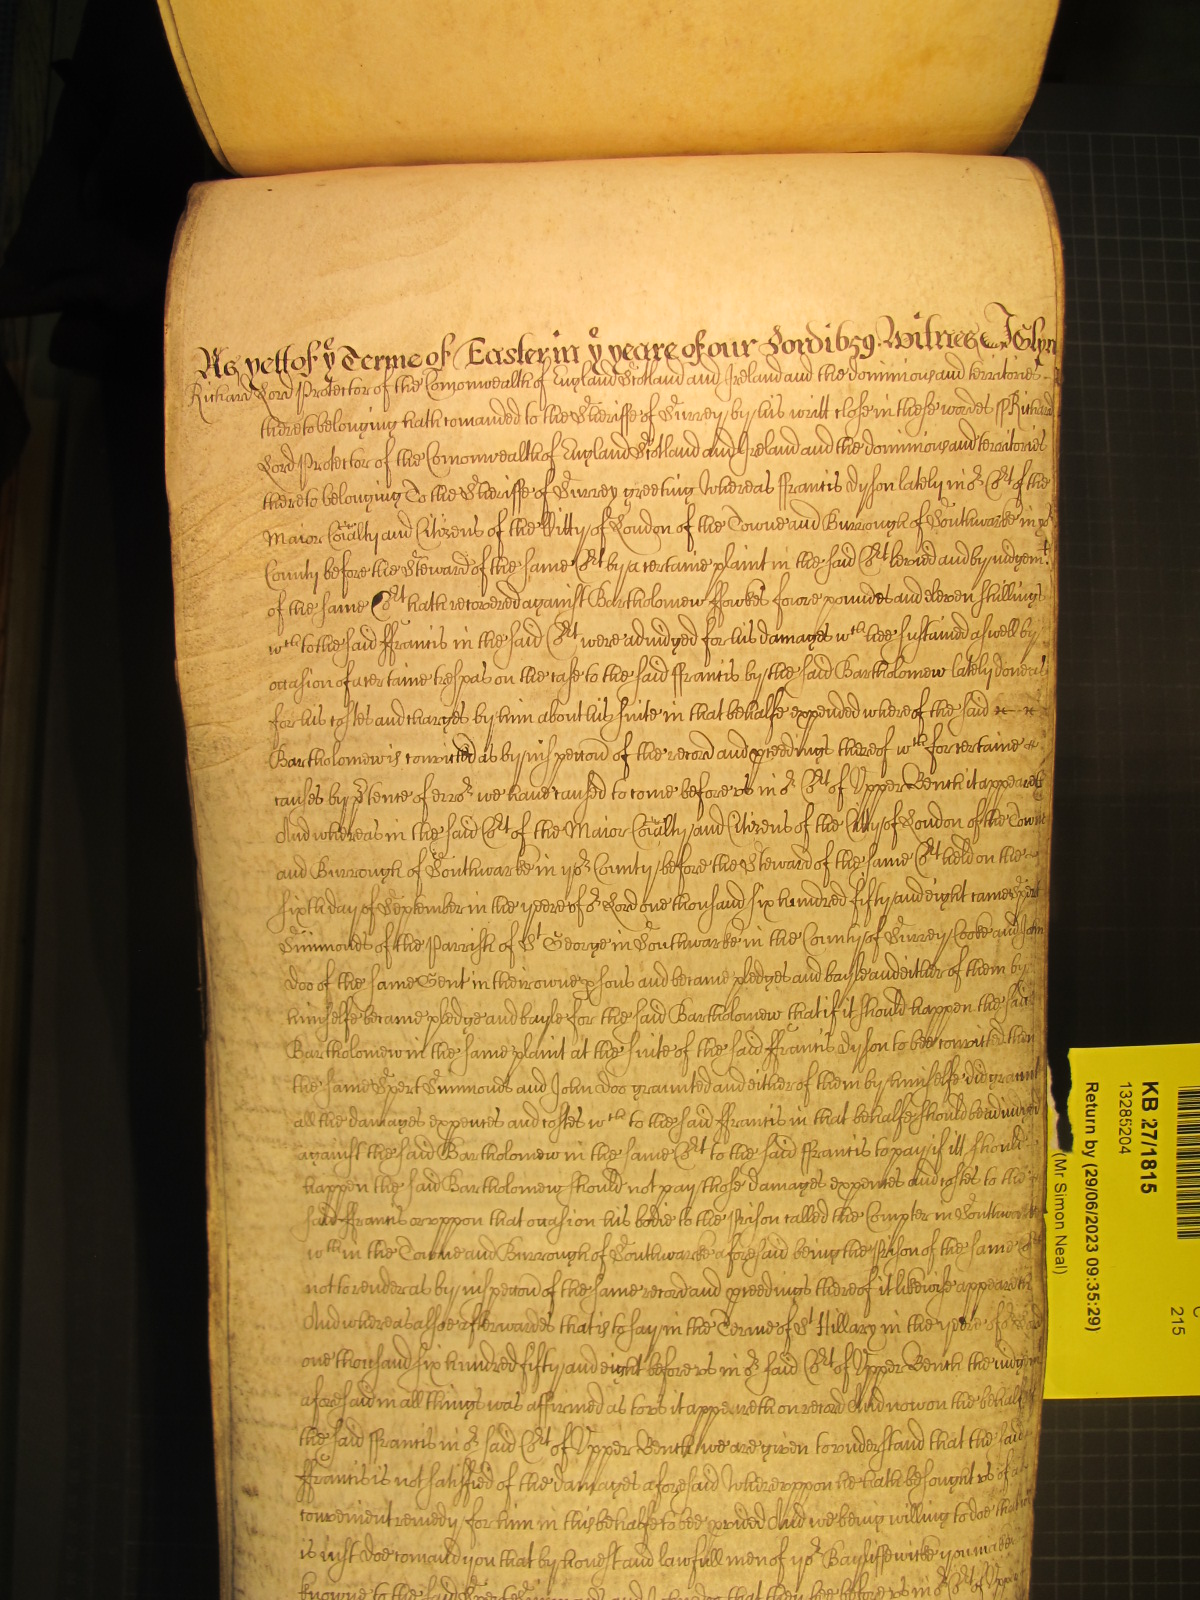 As yett of yͤ Terme of Easter in yͤ yeare of our Lord 1659. Witnes J Glyn
Richard Lord Protector of the Comonwealth of England Scotland and Ireland and the dominions and territories
thereto belonging hath comanded to the Sheriffe of Surrey by his writt close in these wordes Richard
Lord Protector of the Comonwealth of England Scotland and Ireland and the dominions and territories
thereto belonging To the Sheriffe of Surrey greeting Whereas ffrancis Dyson lately in oʳ Coʳt of the
Maior Coīalty and Citizens of the Citty of London of the Towne and Burrough of Southwarke in yoʳ
County before the Steward of the same Coʳt by a certaine plaint in the said Coʳt levied and by judgemᵗ
of the same Coʳt hath recovered against Bartholomew ffowkes fowre poundes and eleven shillings
wᶜʰ to the said ffrancis in the said Coʳt were adiudged for his damages wᶜʰ hee sustained aswell by
occasion of a certaine trespas on the case to the said ffrancis by the said Bartholomew lately done as
for his costes and charges by him about his suite in that behalfe expended whereof the said
Bartholomew is convicted as by inspeccon of the record and pceedings thereof wᶜʰ for certaine
causes by ptence of erroʳ we have caused to come before vs in oʳ Coʳt of Vpper Bench it appeareth
And whereas in the said Coʳt of the Maior Coīalty and Citizens of the Citty of London of the Towne
and Burrough of Southwarke in yoʳ County before the Steward of the same Coʳt held on the
sixth day of September in the yeere of oʳ Lord one thousand six hundred fifty and eight came
Simmonds of the Parrish of Sᵗ George in Southwarke in the County of Surrey Cooke and John
Doo of the same Gent in their owne psons and became pledges and baile and either of them by
himselfe became pledge and bayle for the said Bartholomew that if it should happen the said
Bartholomew in the same plaint at the suite of the said ffrancis Dyson to bee convicted then
the same Simmonds and John Doo graunted and either of them by himselfe did graunt
all the damages expences and costes wᶜʰ to the said ffrancis in that behalfe should be adiudged
against the said Bartholomew in the same Coʳt to the said ffrancis to pay if itt should
happen the said Bartholomew should not pay those damages expences and costes to the
said ffrancis or vppon that occasion his bodie to the Prison called the Compter in Southwarke
wᶜʰin the Towne and Burrough of Southwarke aforesaid being the Prison of the same Coʳt
not to render as by inspeccon of the same record and pceedings thereof it likewise appeareth
And whereas alsoe afterwardes that is to say in the Terme of Sᵗ Hillary in the yeere of oʳ Lord
one thousand six hundred fifty and eight before vs in oʳ said Coʳt of Vpper Bench the iudgemᵗ
aforesaid in all things was affirmed as to vs it appeareth on record And now on the behalfe
the said ffrancis in oʳ said Coʳt of Vpper Bench we are given to vnderstand that the said
ffrancis is not satisfied of the damages aforesaid Wherevppon he hath besought vs of a
convenient remedy for him in this behalfe to bee pvided And we being willing to doe that
is iust doe comand you that by honest and lawfull men of yoʳ Bayliffewicke you make
knowne to the said Simmonds and John Doo that they bee before vs in oʳ Coʳt of Vpper
KB 27/1815
13285204
Return by (29/06/2023 09:35:29)
(Mr Simon Neal)
215